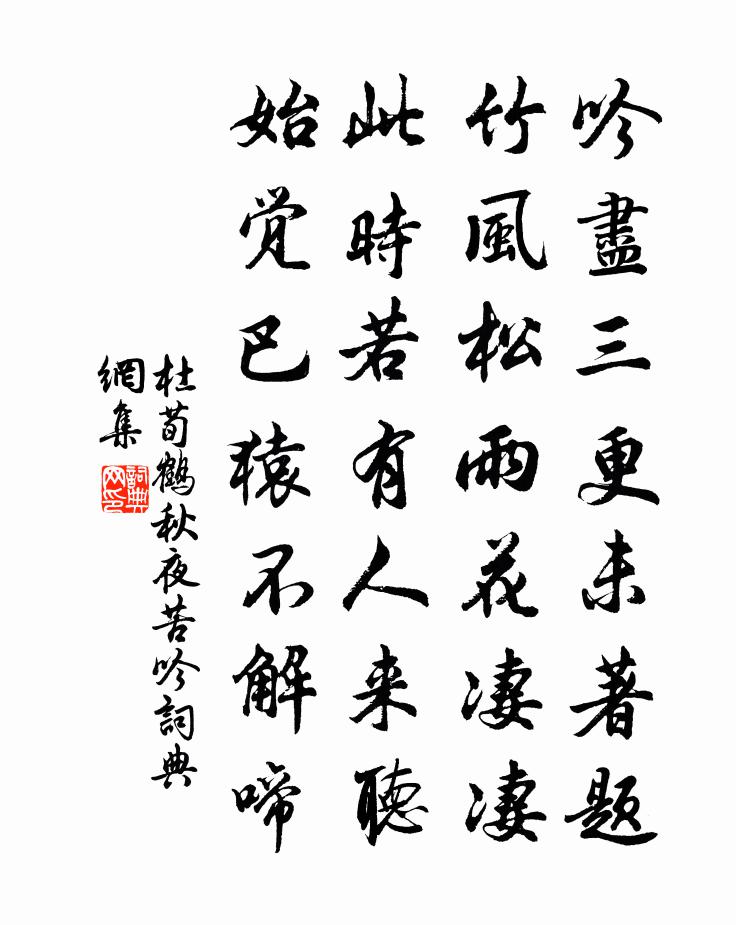 吟盡三更未著题
竹風松雨花凄凄
此時若有人来聴
始觉巴猿不解啼
杜荀鶴秋夜苦吟詞典
網集
詞典网印